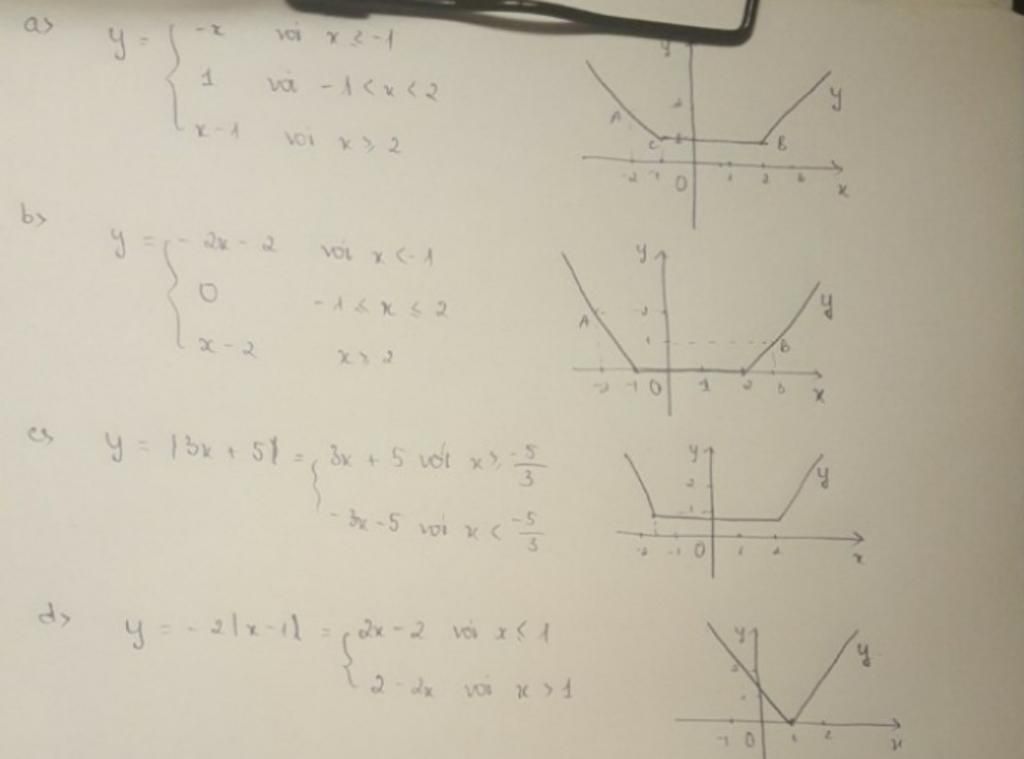 a) y = { -x với x ≤ -1
1 với -1 < x < 2
x-1 với x ≥ 2
y
2
A
C
B
y
-2 -1 O 1 2 3 x
b) y = { -2x - 2 với x < -1
0 -1 ≤ x ≤ 2
x - 2 x ≥ 2
y
A 2 y
1 B
-2 -1 O 1 2 3 x
c) y = |3x + 5| = { 3x + 5 với x ≥ -5/3
-3x - 5 với x < -5/3
y
2 y
1
-2 -1 O 1 2 x
d) y = -2|x-1| = { 2x - 2 với x ≤ 1
2 - 2x với x > 1
y
2 y
-1 O 1 2 x